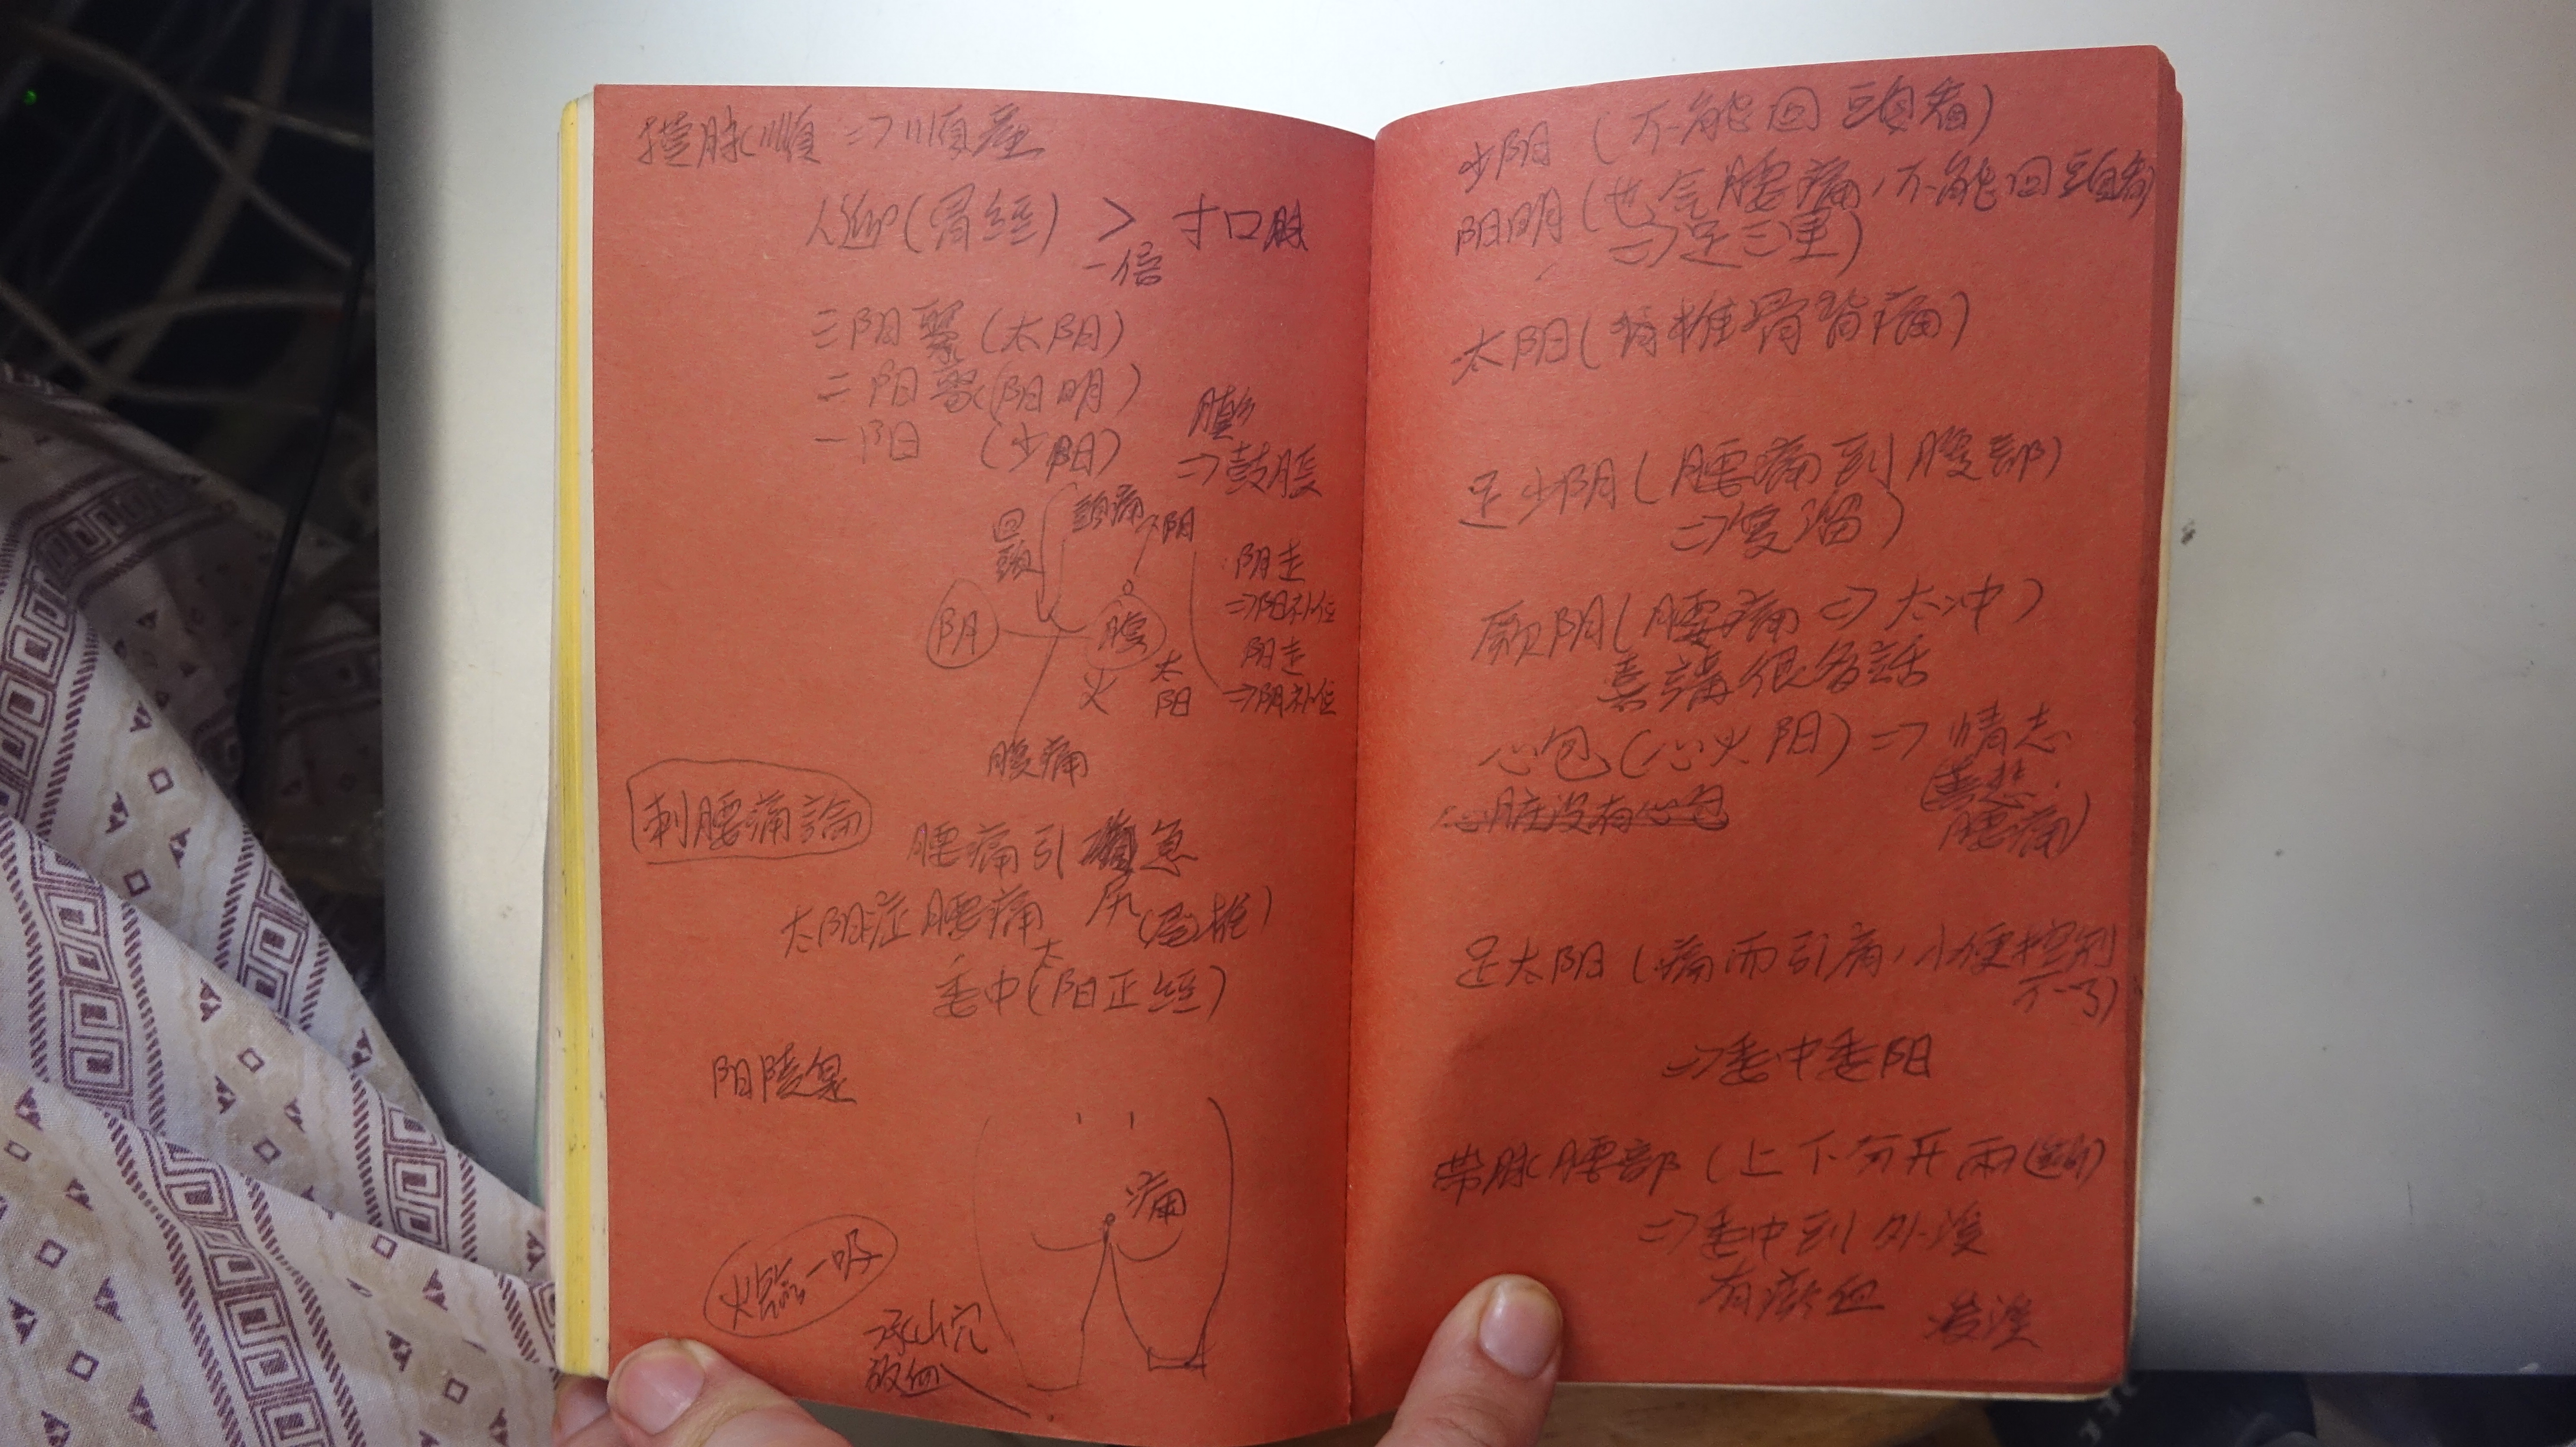 摸脉順 => 順產
人迎(胃經) > 寸口脉
一倍
三阳聚(太阳)
二阳聚(阳明)
一阳 (少阳)
=>鼓脹
頭痛
回頭
阴走
=>阳补位
阳走
=>阴补位
阴
腹
火
太阳
腹痛
刺腰痛論
腰痛引 急
太阳症腰痛 尻(尾椎)
委中(太阳正經)
阳陵泉
痛
火罐一吸
承山穴
放血
少阳(不能回頭看)
阳明(也会腰痛,不能回頭看
=>足三里)
太阳(脊椎骨背痛)
足少阴(腰痛到腹部
=>復溜)
厥阴(腰痛=>太冲)
喜講很多話
心包(心火阳) => 情志
(喜悲.
腰痛)
心脏没有心包
足太阳(痛而引痛,小便控制
不了)
=>委中委阳
带脉腰部(上下分开兩邊)
=>委中到外溪
有瘀血